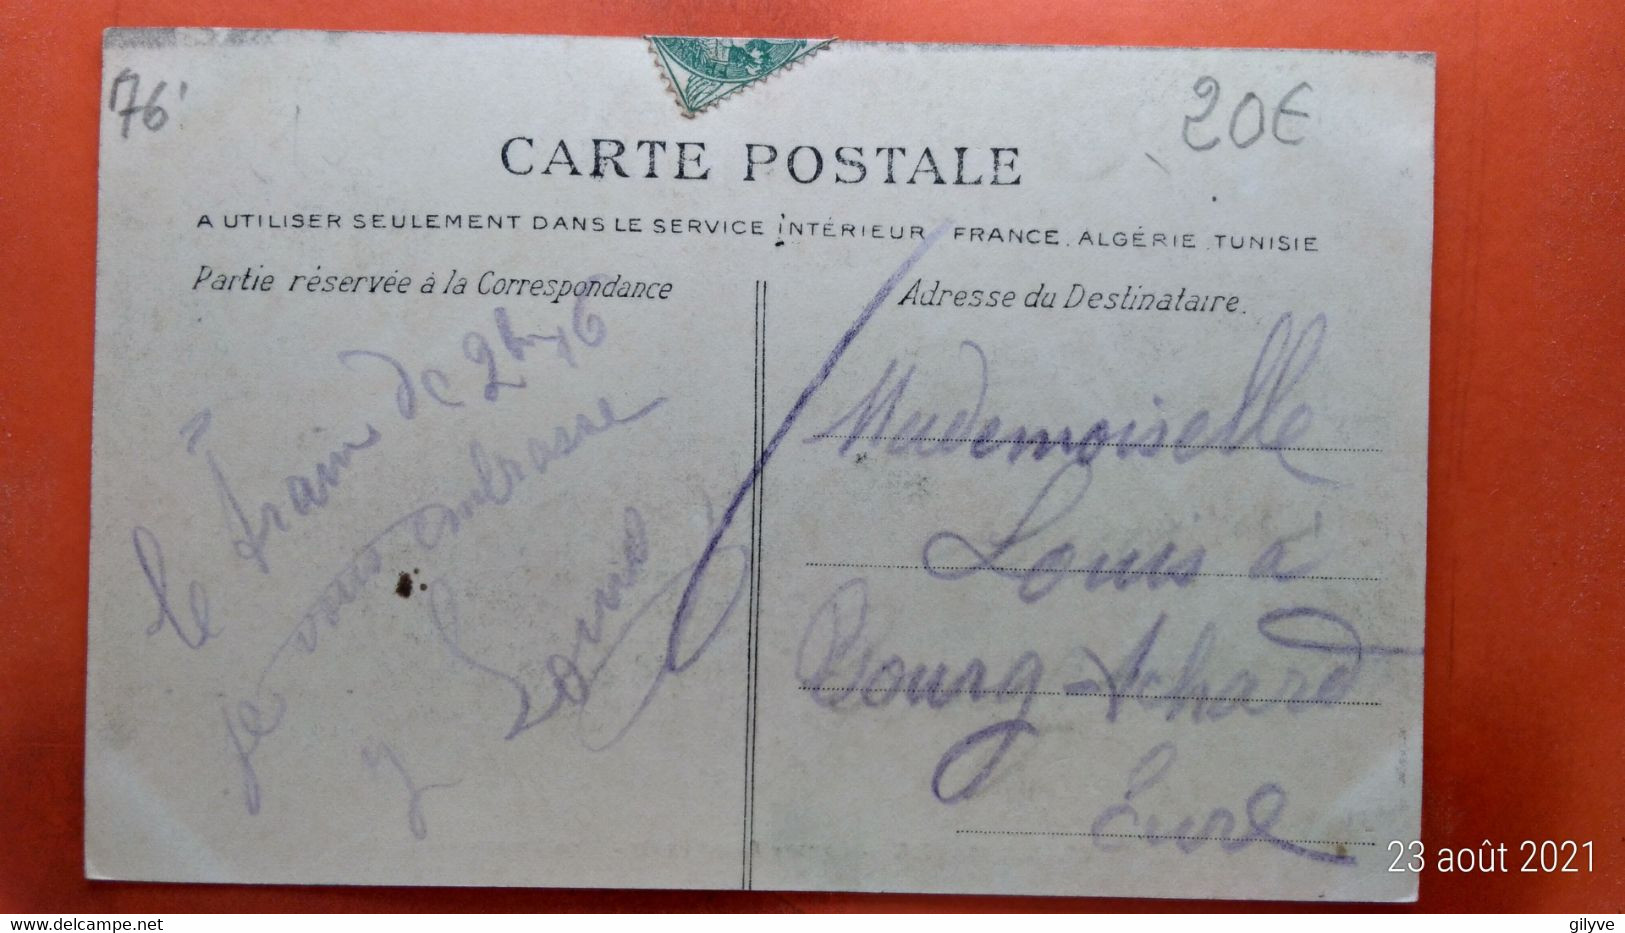 76'
20€
CARTE POSTALE
A UTILISER SEULEMENT DANS LE SERVICE INTÉRIEUR FRANCE. ALGÉRIE. TUNISIE
Partie réservée à la Correspondance
le train de 2h
je vous embrasse
Adresse du Destinataire.
Mademoiselle
Louis à
Bourg-Achard
Eure
23 août 2021
gilyve